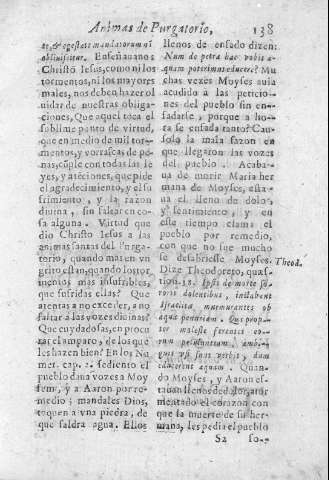 Animas de Purgatorio,
138
te, & egestate mandatorum q̃
obliuiscitur. Enseñauanos
Christo Iesus, como ni los
tormentos, ni los mayores
males, nos deben hazer ol
uidar de nuestras obliga-
ciones, Que aquel toca el
sublime punto de virtud,
que en medio de mil tor-
mentos, y vorrascas de pe-
nas, cũple con todas las le
yes, y atẽciones, que pide
el agradecimiento, y el su
frimiento, y la razon
diuina, sin faltar en co-
sa alguna. Virtud que
dio Christo Iesus a las
animas santas del Purga-
torio, quando mas en vn
grito estan, quando los tor
mentos mas insufribles,
que sufridas ellas? Que
atentas a no exceder, a no
faltar a las vozes diuinas?
Que cuydadosas, en procu
rar el amparo, de los que
les hazen bien? En los Nu
mer. cap. 2. sediento el
pueblo dina vozes a Moy
sem, y a Aaron por re-
medio; mandales Dios,
toquen a vna piedra, de
que saldra agua. Ellos
llenos de enfado dizen:
Num de petra hac vobis a-
quam poterimus educere? Mu
chas vezes Moyses auia
acudido a las peticio-
nes del pueblo sin en-
fadarse, porque a ho-
ra se enfada tanto? Cau-
solo la mala sazon en
que llegaron las vozes
del pueblo. Acaba-
ua de morir Maria her
mana de Moyses, esta-
ua el lleno de dolor,
y sentimiento, y en
este tiempo clama el
pueblo por remedio,
con que no fue mucho
se desabriesse Moyses.
Dize Theodoreto, quæs-
tion. 18. Ipsi de morte so-
roris dolentibus, instabent
Israelita murmurantes ob
aquæ penuriam. Qui prop-
ter moleste ferentes eo-
rum petulantiam. ambi-
guis vsi sunt verbis, dum
educerent aquam. Quan-
do Moyses, y Aaron es-
tauan llenos de dolor, ator
mentado el corazon con
que la muerte de su her-
mana, les pedia el pueblo
Theod.
S2
so--